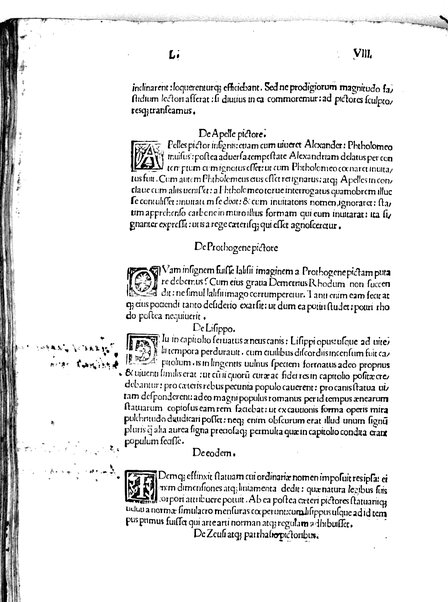 L. VIII.
inclinarent: loquerenturq; efficiebant. Sed ne prodigiorum magnitudo fa/
stidium lectori afferat: si diutius in ea commoremur: ad pictores sculpto/
resq; transeamus.
De Apelle pictore.
APelles pictor insignis: etiam cum uiueret Alexander: Phtholomeo
inuisus: postea aduersa tempestate Alexandriam delatus per con
temptum ei ignotus esset: cum Phtholomeo coenaret inuita
tus fuit. Cum autem Phtholomeus eius esset regnatus: atq; Apelles in con/
claue cum aliis uenisset: a Phtholomeo rege interrogatus quamobrem illuc
se contulisset: inuitatum se dixit: & cum inuitatoris nomen ignoraret: sta/
tim apprehenso carbone in muro illius formam qui eum inuitarat: ita si/
gnanter expressit: ut is a rege caeterisq; qui esset agnosceretur.
De Prothogene pictore
QVam insignem fuisse Ialisii imaginem a Prothogene pictam puta
re debemus? Cum eius gratia Demetrius Rhodum non succen
dit: ne simul Ialisii imago corrumperetur. Tanti enim eam fecit at
q; eius potiendi tanto desiderio exarsit: ut dum ea potiri studet: potiri rho
do postea nequiuerit.
De Lisippo.
DIu in capitolio seruatus aeneus canis: Lisippi opus: usque ad uite/
lii tempora perdurauit. cum ciuilibus discordiis incensum fuit ca/
pitolium. is in lingentis uulnus speciem formatus adeo proprius
& uiuenti similis erat: ut
debantur: pro caeteris rebus pecunia populo cauerent: pro canis statua ui/
tam desponderent: adeo magni populus romanus per id tempus aenearum
statuarum copiosus eam rem faciebat: ut ex cautionis forma operis mira
pulchritudo diiudicari posset: neq; enim obscurum erat illud unum signum
pluris q̃ alia aurea signa preciosaq; permulta quae in capitolio condita erant
populum fecisse.
De eodem.
IDemq; effinxit statuam cui ordinariae nomen imposuit res ipsa: ei
enim dimensiones atq; liniamenta dedit: quae natura legibus suis
corpori attribuere potuit. Ab ea postea caeteri pictores statuariiq;
uelut a normae simulacro mensuras coeperunt: cum Lisippus usque ad id tem
pus primus fuisset qui arte arti normam atq; regulam adhibuisset.
De Zeusi atq; parrhasio pictoribus.